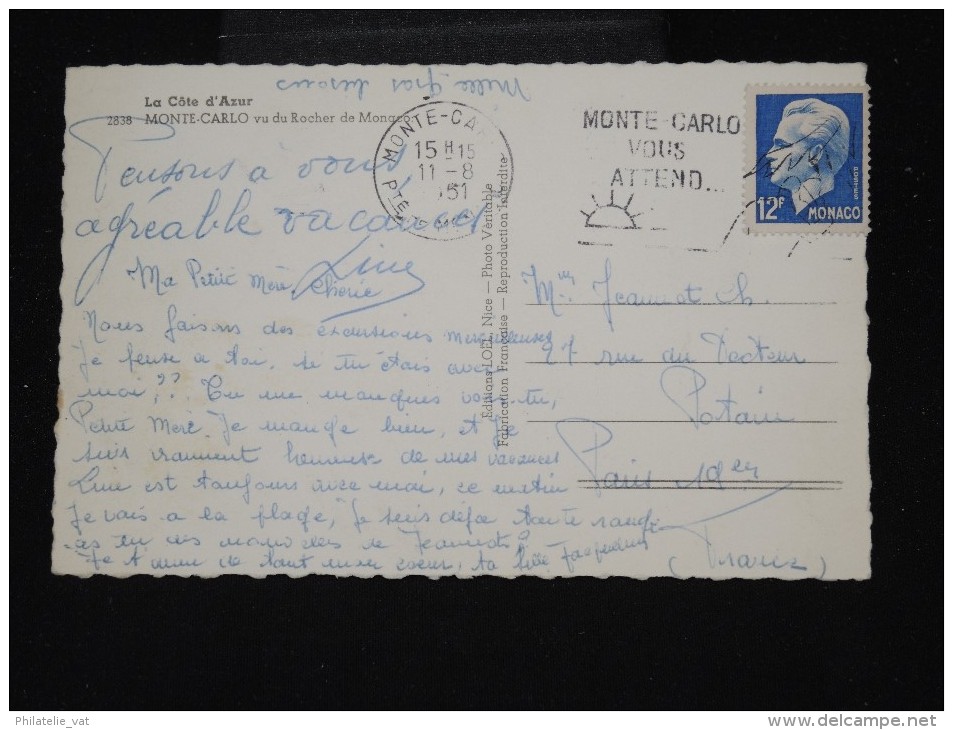 Mille gros baisers
La Côte d'Azur
2838 MONTE-CARLO vu du Rocher de Monaco
Pensons à vous
agréable vacances
Line
MONTE-CA
15 H 15
11-8
1951
PTE DE
MONTE-CARLO
VOUS
ATTEND...
12F MONACO
Editions LOEL, Nice — Photo Véritable
Fabrication Française — Reproduction Interdite
Ma Petite Mère Chérie
Nous faisons des excursions merveilleuses
Je pense à toi, si tu étais avec
moi,?? Tu me manques vois-tu,
Petite Mère. Je mange bien, et je
suis vraiment heureuse de mes vacances
Line est toujours avec moi, ce matin
Je vais à la plage, Je suis déjà toute rouge
as tu des nouvelles de Jeannot?
Je t'aime de tout mon coeur, ta fille Jacqueline
Mme Jeannot Ch.
27 rue du Docteur
Potain
Paris 19em
(France)
Philatelie_vat
www.delcampe.net